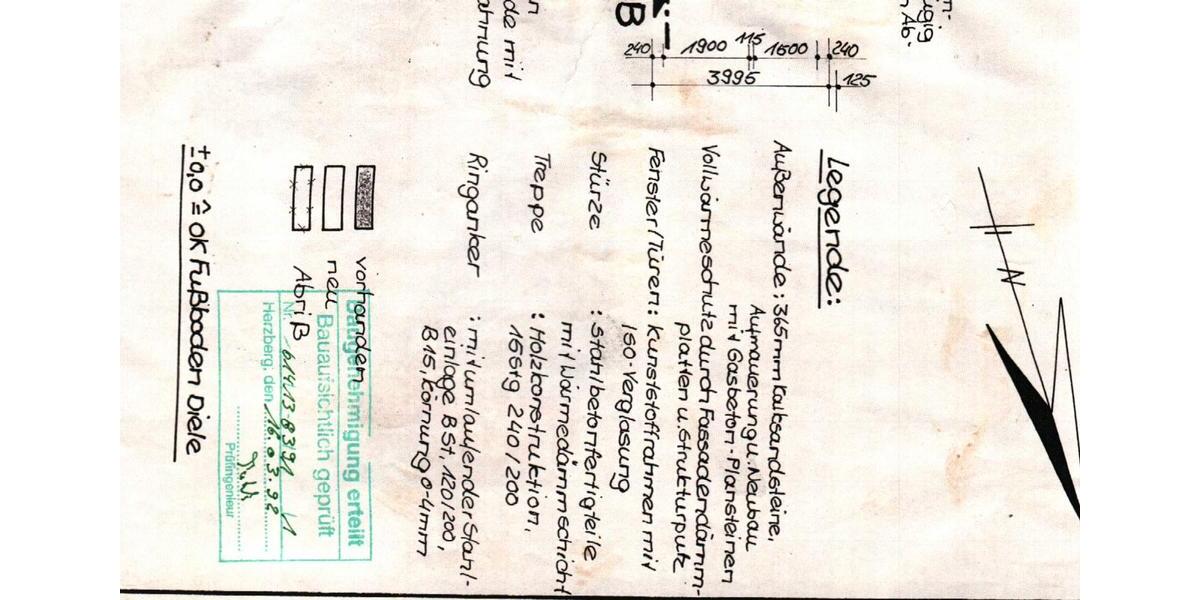 n-
ügig
n Ab.
n
de mit
ahnung
B
240 1900 115 1600 240
3995 125
N
Legende:
Außenwände: 365mm Kalksandsteine,
Aufmauerung u. Neubau
mit Gasbeton-Plansteinen
Vollwärmeschutz durch Fassadendämm-
platten u. Strukturputz
Fenster/Türen: Kunststoffrahmen mit
Iso-Verglasung
Stürze : Stahlbetonfertigteile
mit Wärmedämmschicht
Treppe : Holzkonstruktion,
15Stg 240/200
Ringanker : mit umlaufender Stahl-
einlage BSt, 120/200,
B15, Körnung 0-4mm
vorhanden
neu
Abriß
Baugenehmigung erteilt
Bauaufsichtlich geprüft
Nr.
Herzberg, den 16.03.92
Prüfingenieur
±0,0 ≙ OK Fußboden Diele